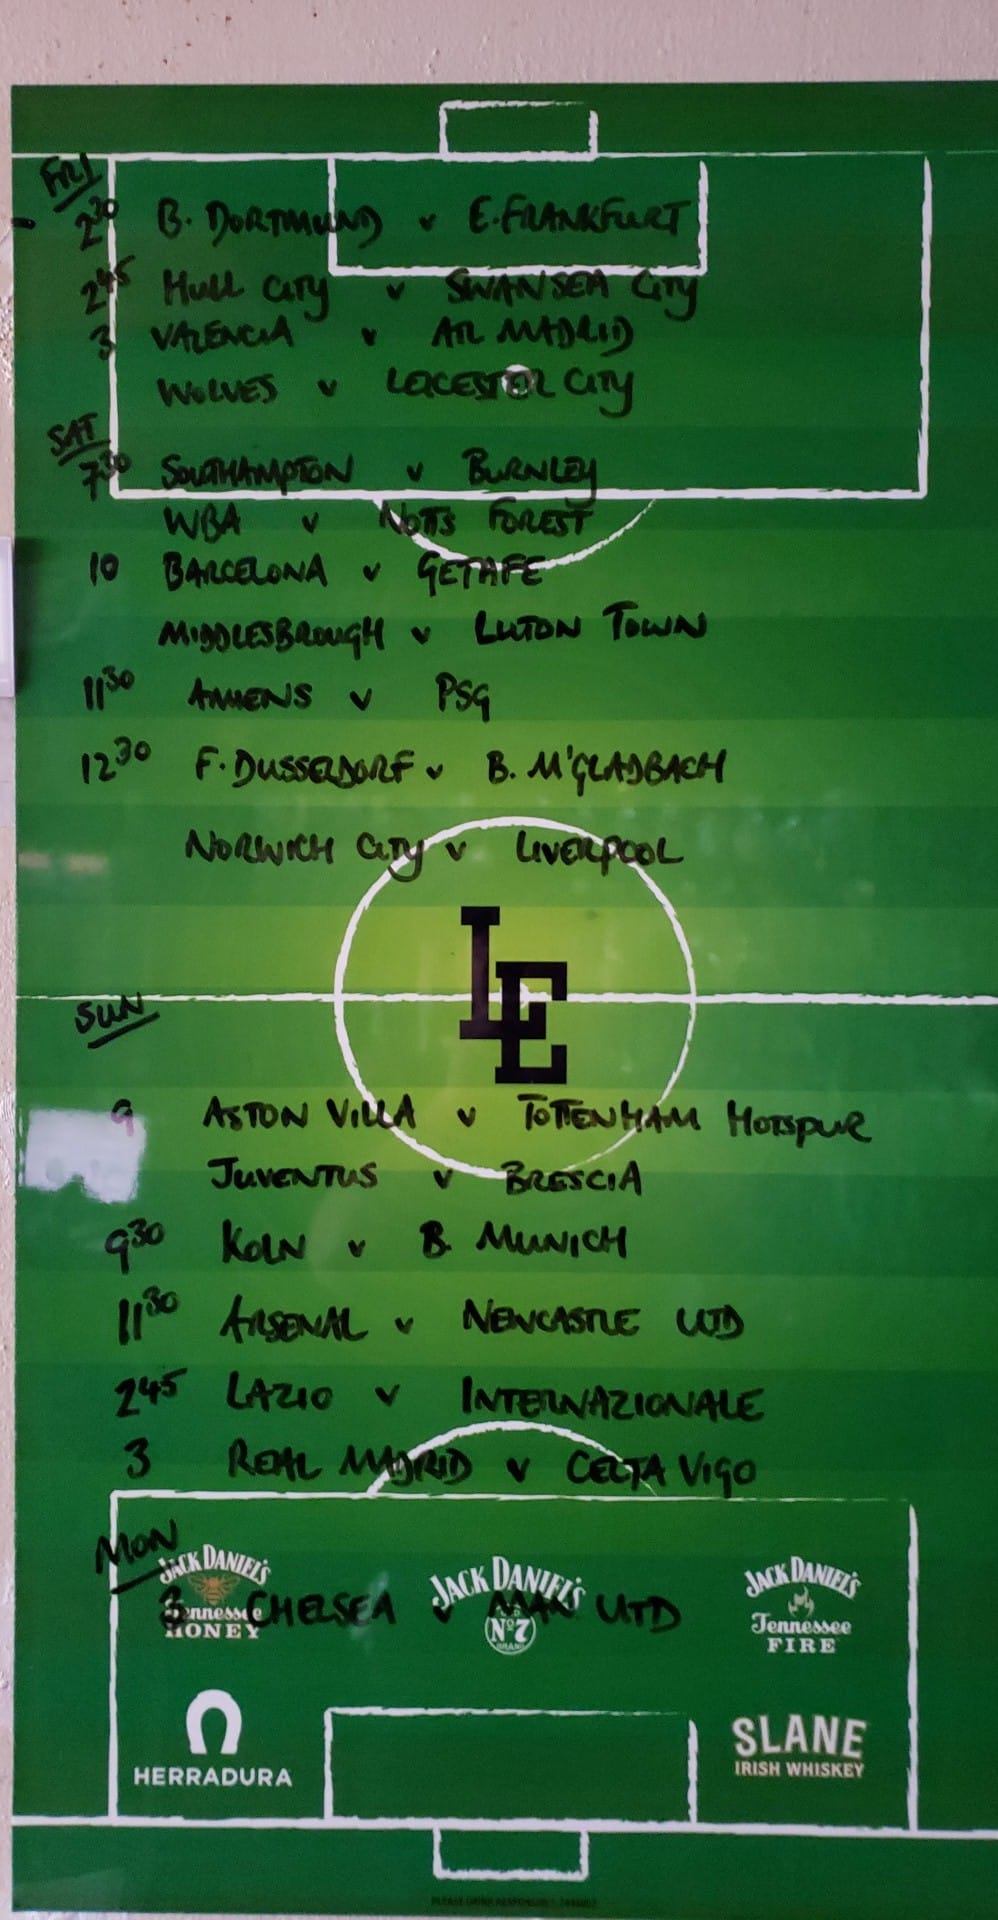 FRI
2 30 B. DORTMUND v E. FRANKFURT
2 45 HULL CITY v SWANSEA CITY
3 VALENCIA v ATL MADRID
WOLVES v LEICESTER CITY
SAT
7 30 SOUTHAMPTON v BURNLEY
WBA v NOTTS FOREST
10 BARCELONA v GETAFE
MIDDLESBROUGH v LUTON TOWN
11 30 AMIENS v PSG
12 30 F. DUSSELDORF v B. M'GLADBACH
NORWICH CITY v LIVERPOOL
LE
SUN
9 ASTON VILLA v TOTTENHAM HOTSPUR
JUVENTUS v BRESCIA
9 30 KOLN v B. MUNICH
11 30 ARSENAL v NEWCASTLE UTD
2 45 LAZIO v INTERNAZIONALE
3 REAL MADRID v CELTA VIGO
MON
3 CHELSEA v MAN UTD
JACK DANIEL'S
Tennessee
HONEY
JACK DANIEL'S
OLD
Nº 7
BRAND
JACK DANIEL'S
Tennessee
FIRE
HERRADURA
SLANE
IRISH WHISKEY
PLEASE DRINK RESPONSIBLY.